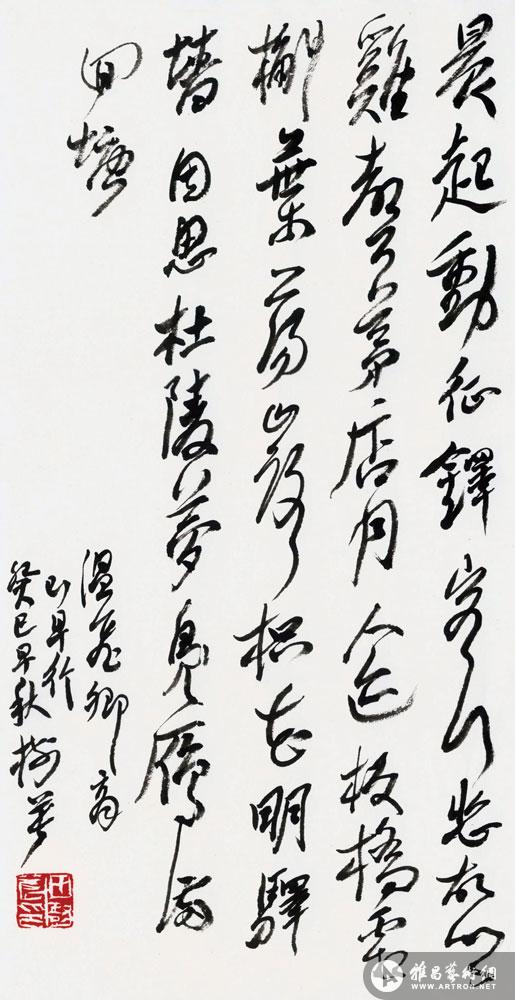 晨起動征鐸客行悲故鄉
雞聲茅店月人迹板橋霜
槲葉落山路枳花明驛
墻因思杜陵夢鳧雁滿
回塘
温飛卿商
山早行
癸巳早秋樹
雅昌藝術網
WWW.ARTRON.NET